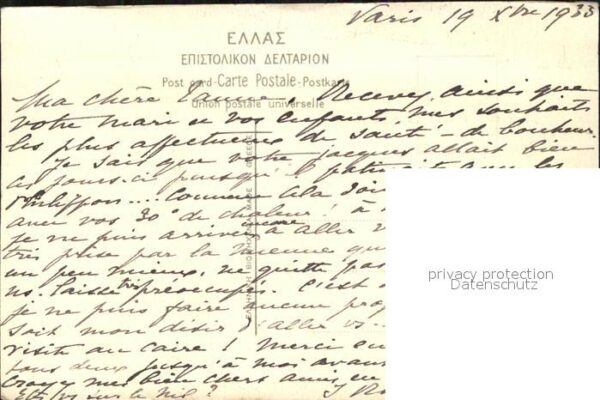 Paris 19 Xbre 1933
ΕΛΛΑΣ
ΕΠΙΣΤΟΛΙΚΟΝ ΔΕΛΤΑΡΙΟΝ
Post card-Carte Postale-Postkarte
Union postale universelle
Ma chère Recevez, ainsi que
votre mari et vos enfants mes souhaits
les plus affectueux de santé - de bonheur.
Je sais que votre Jacques allait bien
ces jours-ci puisqu'il patinait avec les
Philippon.... Comme cela doit
avec vos 30° de chaleur! à
je ne puis arriver encore à aller
très prise par la mienne qui
un peu mieux, ne quitte pas
ns. laisse très préoccupés. C'est
je ne puis faire aucun pro
soit mon désir d'aller vs
visite au Caire! Merci
tous deux jusqu'à moi avant
Croyez mes bien chers amis en
Etes vs sur le Nil?
privacy protection
Datenschutz